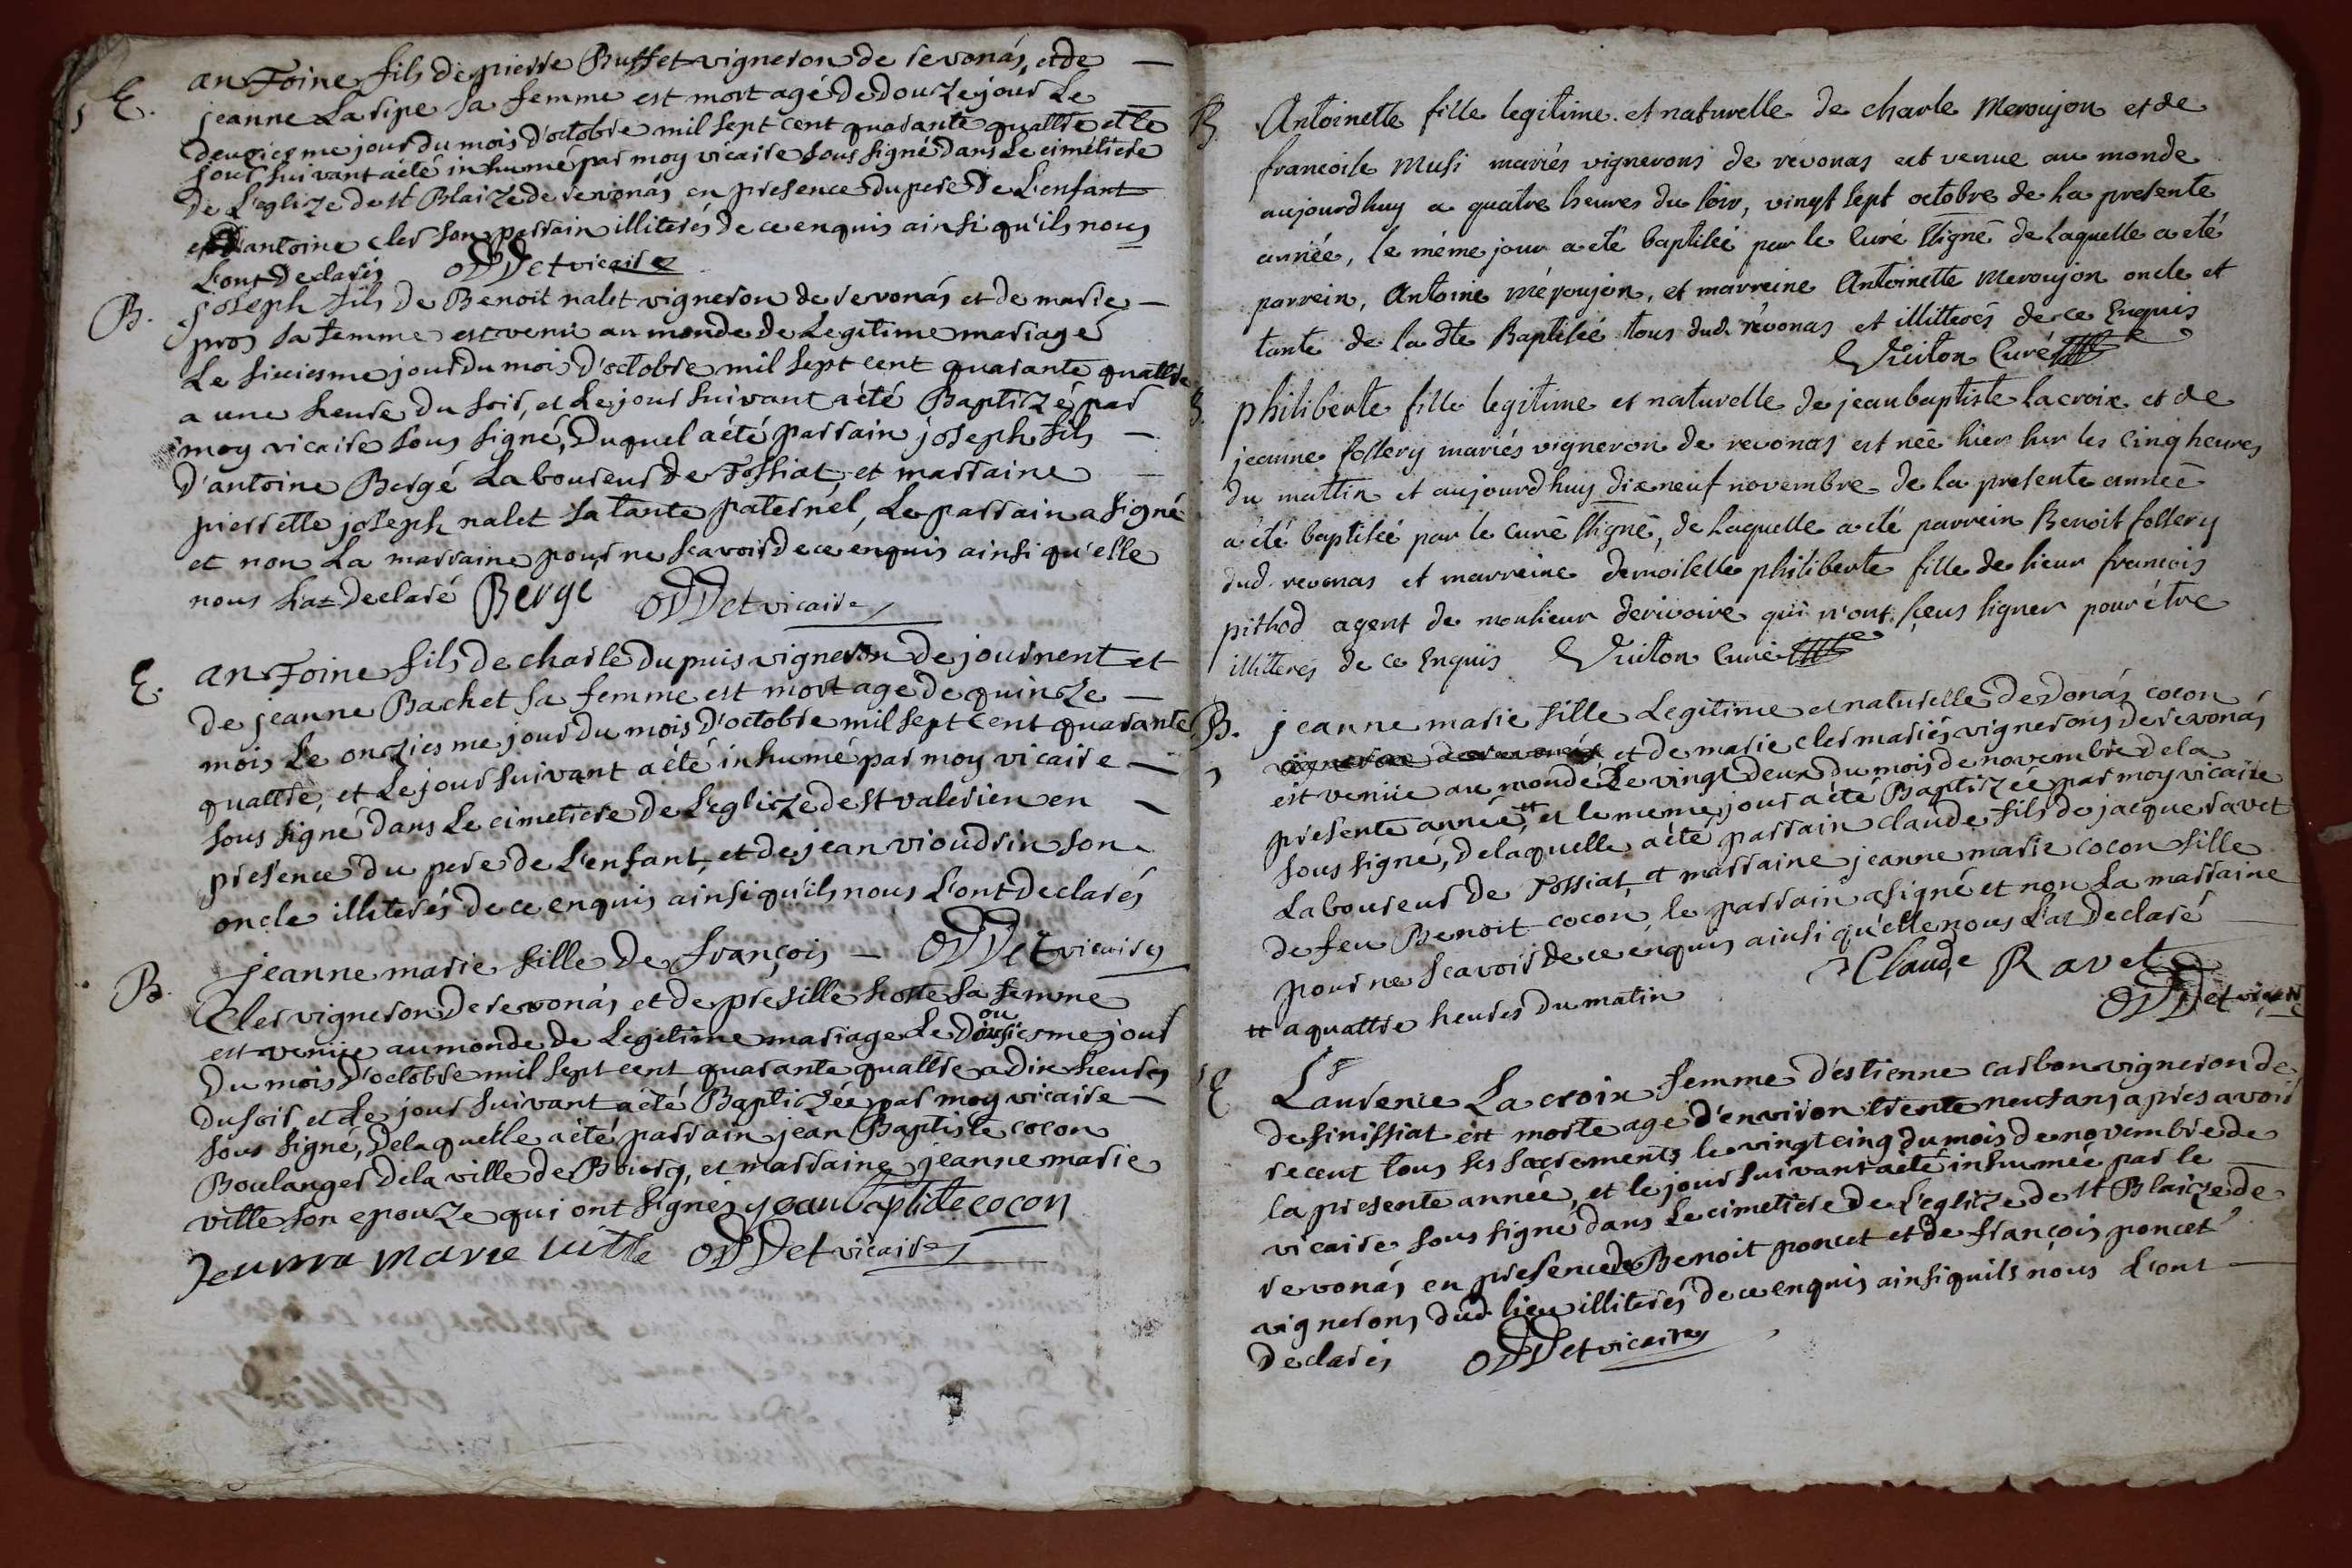 E. anToine fils de pierre Buffet vigneron de revonás, et de
jeanne Laripe sa femme est mort agé de douze jour Le
deuxiesme jour du mois d'octobre mil sept cent quarante quattre et le
jour suivant a été inhumé par moy vicaire sous signé dans Le cimetiere
de L'eglize de st Blaize de revonás en presence du pere de L'enfant
et d'antoine cler son parrain illiterés de ce enquis ainsi qu'ils nous
L'ont declarés ODDet vicaire
B. joseph fils de Benoit nalet vigneron de revonás et de marie
pros sa femme est venu au monde de Legitime mariage
Le sixiesme jour du mois d'octobre mil sept cent quarante quattre
a une heure du soir, et Le jour suivant a été Baptizé par
moy vicaire sous signé, Duquel a été parrain joseph fils
d'antoine Bergé Laboureur de Tossiat et marraine
pierrette joseph nalet sa tante paternel, Le parrain a signé
et non La marraine pour ne scavoir de ce enquis ainsi qu'elle
nous L'at declaré Berge ODDet vicaire
E. anToine fils de charle Dupuis vigneron de journent et
de jeanne Bachet sa femme est mort age de quinze
mois Le onziesme jour du mois d'octobre mil sept cent quarante
quattre, et Le jour suivant a été inhumé par moy vicaire
sous signé dans Le cimetiere de L'eglize de st valerien en
presence du pere de L'enfant, et de jean vioudrin son
oncle illiterés de ce enquis ainsi qu'ils nous L'ont declarés
B. jeanne marie fille de françois ODDet vicaire
Cler vigneron de revonás et de presille hoste sa femme
ou
est venüe au monde de Legitime mariage Le douziesme jour
du mois d'octobre mil sept cent quarante quattre a dix heures
du soir et Le jour suivant a été Baptizée par moy vicaire
sous signé, De laquelle a été parrain jean Baptiste cocon
Boulanger de la ville de Bourg, et marraine jeanne marie
ville son epouze qui ont signés jean baptiste cocon
Jeanna marie ville ODDet vicaire
B. Antoinette fille legitime et naturelle de charle Meroujon et de
francoise Musi mariés vignerons de révonas est venue au monde
aujourdhuy a quatre heures du soir, vingt sept octobre de la presente
année, le même jour a eté baptisée par le curé ssigné de laquelle a eté
parrein, Antoine méroujon, et marreine Antoinette Meroujon oncle et
tante de la dte Baptisée tous dud. révonas et illitterés de ce Enquis
Vuiton Curé
B. philiberte fille legitime et naturelle de jean baptiste lacroix et de
jeanne follery mariés vigneron de revonas est née hier sur les cinq heures
du mattin et aujourdhuy dixneuf novembre de la presente année
a été baptisée par le curé ssigné, de laquelle a eté parrein Benoit follery
dud. revonas et marreine demoiselle philiberte fille de sieur francois
pithod agent de monsieur derivoire qui n'ont sçeus signer pour être
illitterés de ce Enquis Vuiton Curé
B. jeanne marie fille Legitime et naturelle de Donás cocon
vigneron de revonás et de marie cler mariés vignerons de revonás
est venüe au monde Le vingt deux du mois de novembre de la
presente année, tt et le meme jour a été Baptizée par moy vicaire
sous signé, de laquelle a été parrain claude fils de jacque ravet
Laboureur de Tossiat, et marraine jeanne marie cocon fille
de feu Benoit cocon le parrain a signé et non La marraine
pour ne scavoir de ce enquis ainsi qu'elle nous L'at declaré
tt a quattre heures du matin Claude Ravet
ODDet vicaire
E Laurence La croix femme d'estienne carbon vigneron de
de finissiat est morte age d'environ trente neuf ans apres avoir
receut tous ses sacrements le vingt cinq du mois de novembre de
la presente année, et le jour suivant a été inhumée par le
vicaire sous signé dans Le cimetiere de L'eglize de st Blaize de
revonás en presence de Benoit poncet et de françois poncet
vignerons dud. lieu illiterés de ce enquis ainsi quils nous L'ont
declarés ODDet vicaire